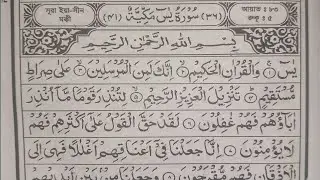 সূরা ইয়া-সীন
মক্কী
(٣٦) سُوْرَةُ يٰسٓ مَكِّيَّةٌ (٤١)
আয়াত : ৮৩
রুকু : ৫
بِسْمِ اللّٰهِ الرَّحْمٰنِ الرَّحِيْمِ
يٰسٓ ١ وَالْقُرْاٰنِ الْحَكِيْمِ ٢ اِنَّكَ لَمِنَ الْمُرْسَلِيْنَ ٣ عَلٰى صِرَاطٍ
مُّسْتَقِيْمٍ ٤ تَنْزِيْلَ الْعَزِيْزِ الرَّحِيْمِ ٥ لِتُنْذِرَ قَوْمًا مَّآ اُنْذِرَ
اٰبَآؤُهُمْ فَهُمْ غٰفِلُوْنَ ٦ لَقَدْ حَقَّ الْقَوْلُ عَلٰٓى اَكْثَرِهِمْ فَهُمْ
لَا يُؤْمِنُوْنَ ٧ اِنَّا جَعَلْنَا فِيْٓ اَعْنَاقِهِمْ اَغْلٰلًا فَهِىَ اِلَى
الْاَذْقَانِ فَهُمْ مُّقْمَحُوْنَ ٨ وَجَعَلْنَا مِنْۢ بَيْنِ